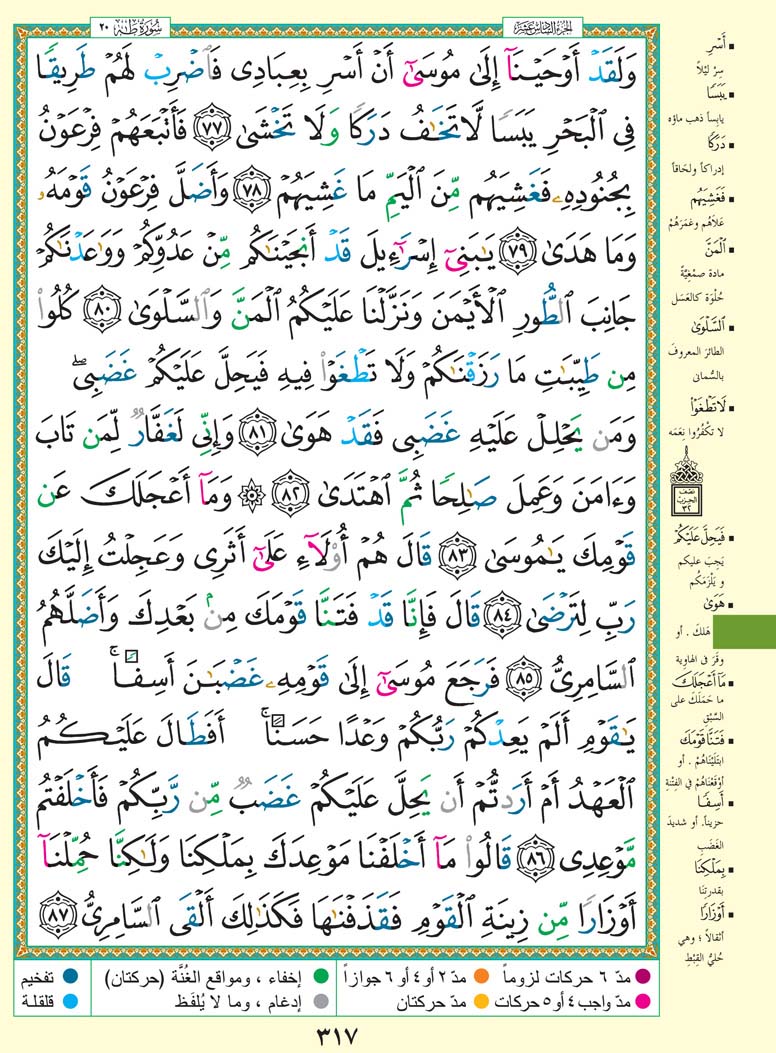 الجزء السادس عشر
سورة طه ٢٠
وَلَقَدْ أَوْحَيْنَآ إِلَىٰ مُوسَىٰٓ أَنْ أَسْرِ بِعِبَادِى فَٱضْرِبْ لَهُمْ طَرِيقًا
فِى ٱلْبَحْرِ يَبَسًا لَّا تَخَٰفُ دَرَكًا وَلَا تَخْشَىٰ ٧٧ فَأَتْبَعَهُمْ فِرْعَوْنُ
بِجُنُودِهِۦ فَغَشِيَهُم مِّنَ ٱلْيَمِّ مَا غَشِيَهُمْ ٧٨ وَأَضَلَّ فِرْعَوْنُ قَوْمَهُۥ
وَمَا هَدَىٰ ٧٩ يَٰبَنِىٓ إِسْرَٰٓءِيلَ قَدْ أَنجَيْنَٰكُم مِّنْ عَدُوِّكُمْ وَوَٰعَدْنَٰكُمْ
جَانِبَ ٱلطُّورِ ٱلْأَيْمَنَ وَنَزَّلْنَا عَلَيْكُمُ ٱلْمَنَّ وَٱلسَّلْوَىٰ ٨٠ كُلُوا۟
مِن طَيِّبَٰتِ مَا رَزَقْنَٰكُمْ وَلَا تَطْغَوْا۟ فِيهِ فَيَحِلَّ عَلَيْكُمْ غَضَبِى ۖ
وَمَن يَحْلِلْ عَلَيْهِ غَضَبِى فَقَدْ هَوَىٰ ٨١ وَإِنِّى لَغَفَّارٌ لِّمَن تَابَ
وَءَامَنَ وَعَمِلَ صَٰلِحًا ثُمَّ ٱهْتَدَىٰ ٨٢ ۞ وَمَآ أَعْجَلَكَ عَن
قَوْمِكَ يَٰمُوسَىٰ ٨٣ قَالَ هُمْ أُو۟لَآءِ عَلَىٰٓ أَثَرِى وَعَجِلْتُ إِلَيْكَ
رَبِّ لِتَرْضَىٰ ٨٤ قَالَ فَإِنَّا قَدْ فَتَنَّا قَوْمَكَ مِنۢ بَعْدِكَ وَأَضَلَّهُمُ
ٱلسَّامِرِىُّ ٨٥ فَرَجَعَ مُوسَىٰٓ إِلَىٰ قَوْمِهِۦ غَضْبَٰنَ أَسِفًا ۚ قَالَ
يَٰقَوْمِ أَلَمْ يَعِدْكُمْ رَبُّكُمْ وَعْدًا حَسَنًا ۚ أَفَطَالَ عَلَيْكُمُ
ٱلْعَهْدُ أَمْ أَرَدتُّمْ أَن يَحِلَّ عَلَيْكُمْ غَضَبٌ مِّن رَّبِّكُمْ فَأَخْلَفْتُم
مَّوْعِدِى ٨٦ قَالُوا۟ مَآ أَخْلَفْنَا مَوْعِدَكَ بِمَلْكِنَا وَلَٰكِنَّا حُمِّلْنَآ
أَوْزَارًا مِّن زِينَةِ ٱلْقَوْمِ فَقَذَفْنَٰهَا فَكَذَٰلِكَ أَلْقَى ٱلسَّامِرِىُّ ٨٧
أَسْرِ
سِرْ ليْلاً
يَبَسًا
يابساً ذهب ماؤه
دَرَكًا
إدراكاً ولحَاقاً
فَغَشِيَهُم
عَلاَهُم وغمَرَهُمْ
ٱلْمَنَّ
مادة صمْغِيَّة
حُلْوَة كالعَسَل
ٱلسَّلْوَىٰ
الطائرَ المعروفَ
بالسُّمانى
لَا تَطْغَوْا۟
لا تكْفُرُوا نِعَمَه
نصف
الحزب
٣٢
فَيَحِلَّ عَلَيْكُمْ
يَجِبَ عليكم
و يَلْزَمَكُم
هَوَىٰ
هَلكَ . أو
وقَعَ فى الهاوية
مَآ أَعْجَلَكَ
ما حَمَلَكَ على
السَّبْق
فَتَنَّا قَوْمَكَ
ابتَلَيْنَاهُمْ . أو
أوْقَعْنَاهُمْ فى الفِتْنة
أَسِفًا
حزيناً. أو شديدَ
الغَضَب
بِمَلْكِنَا
بقدرتِنَا
أَوْزَارًا
أثقالاً ؛ وهي
حُليُّ القِبْط
مدّ ٦ حركات لزوماً
مدّ ٢ أو ٤ أو ٦ جوازاً
إخفاء ، ومواقع الغُنَّة (حركتان)
تفخيم
مدّ واجب ٤ أو ٥ حركات
مدّ حركتان
إدغام ، وما لا يُلفَظ
قلقلة
٣١٧